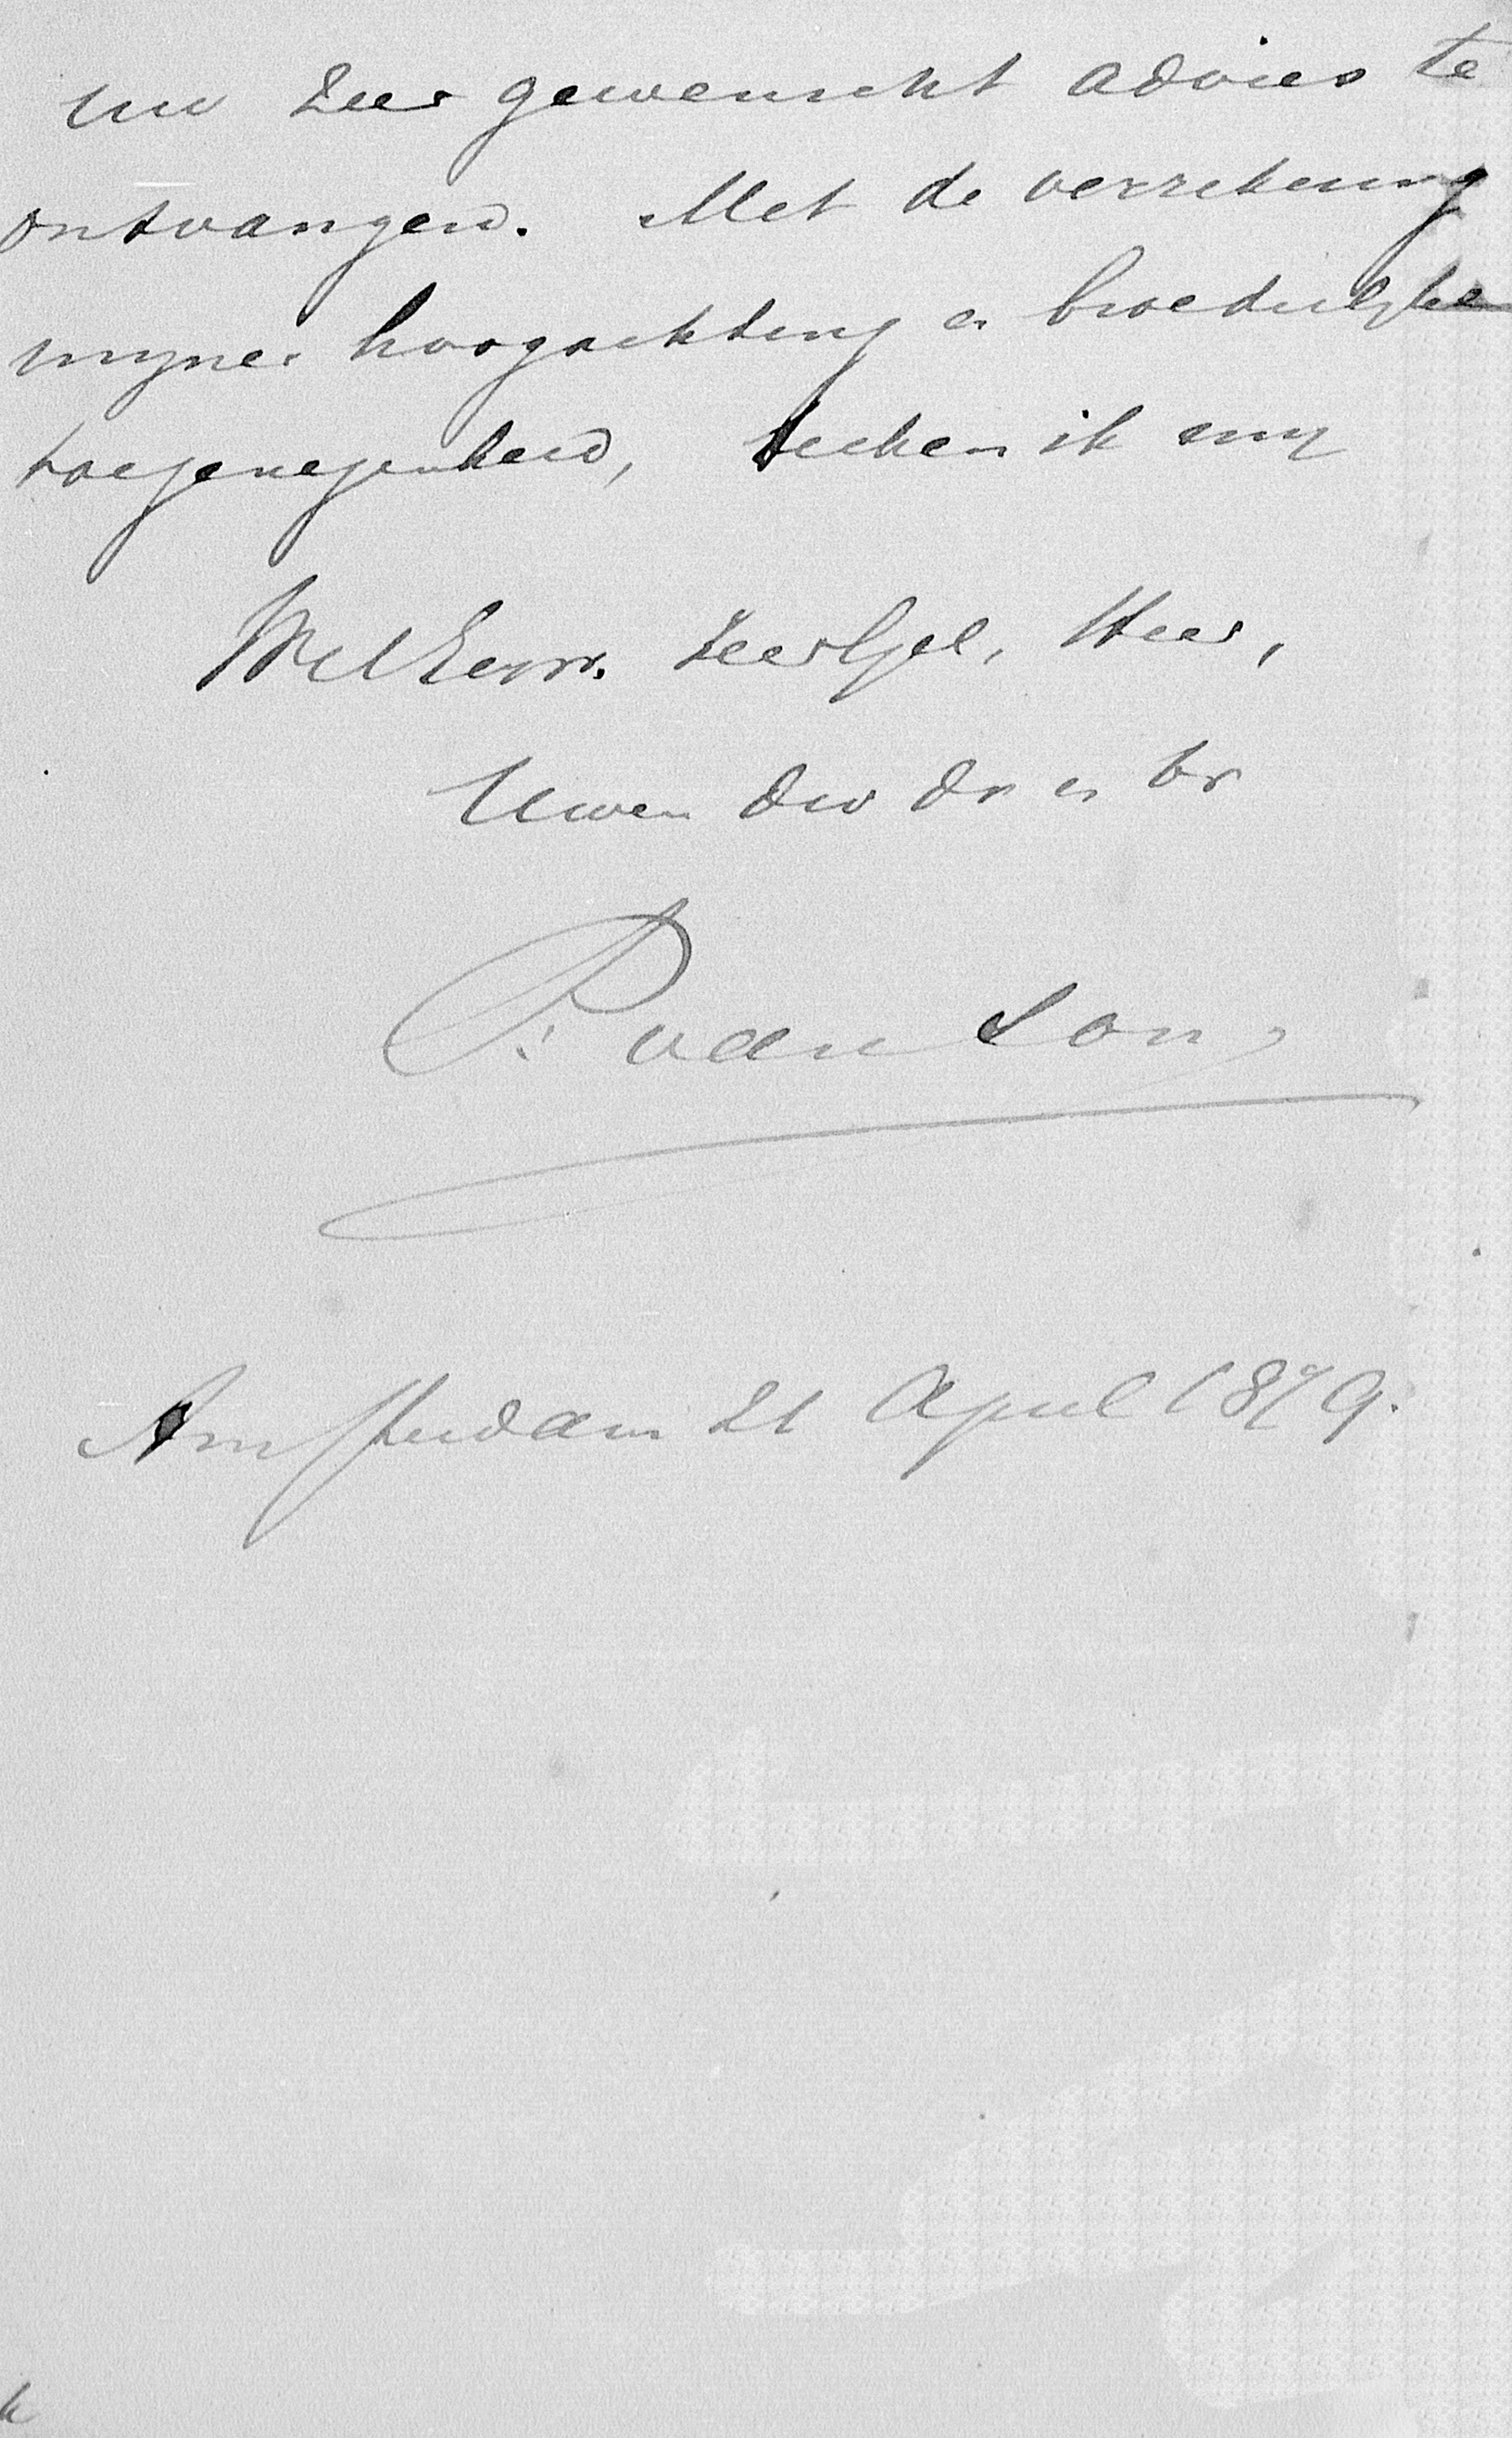 uw zeer gewenscht advies te
ontvangen. Met de verzekering
mijner hoogachting en broederlijke
toegenegenheid, teeken ik mij
WelEerw. ZeerGel. Heer,
Uwen dw dr en br
P. van Son
Amsterdam 21 April 1879.